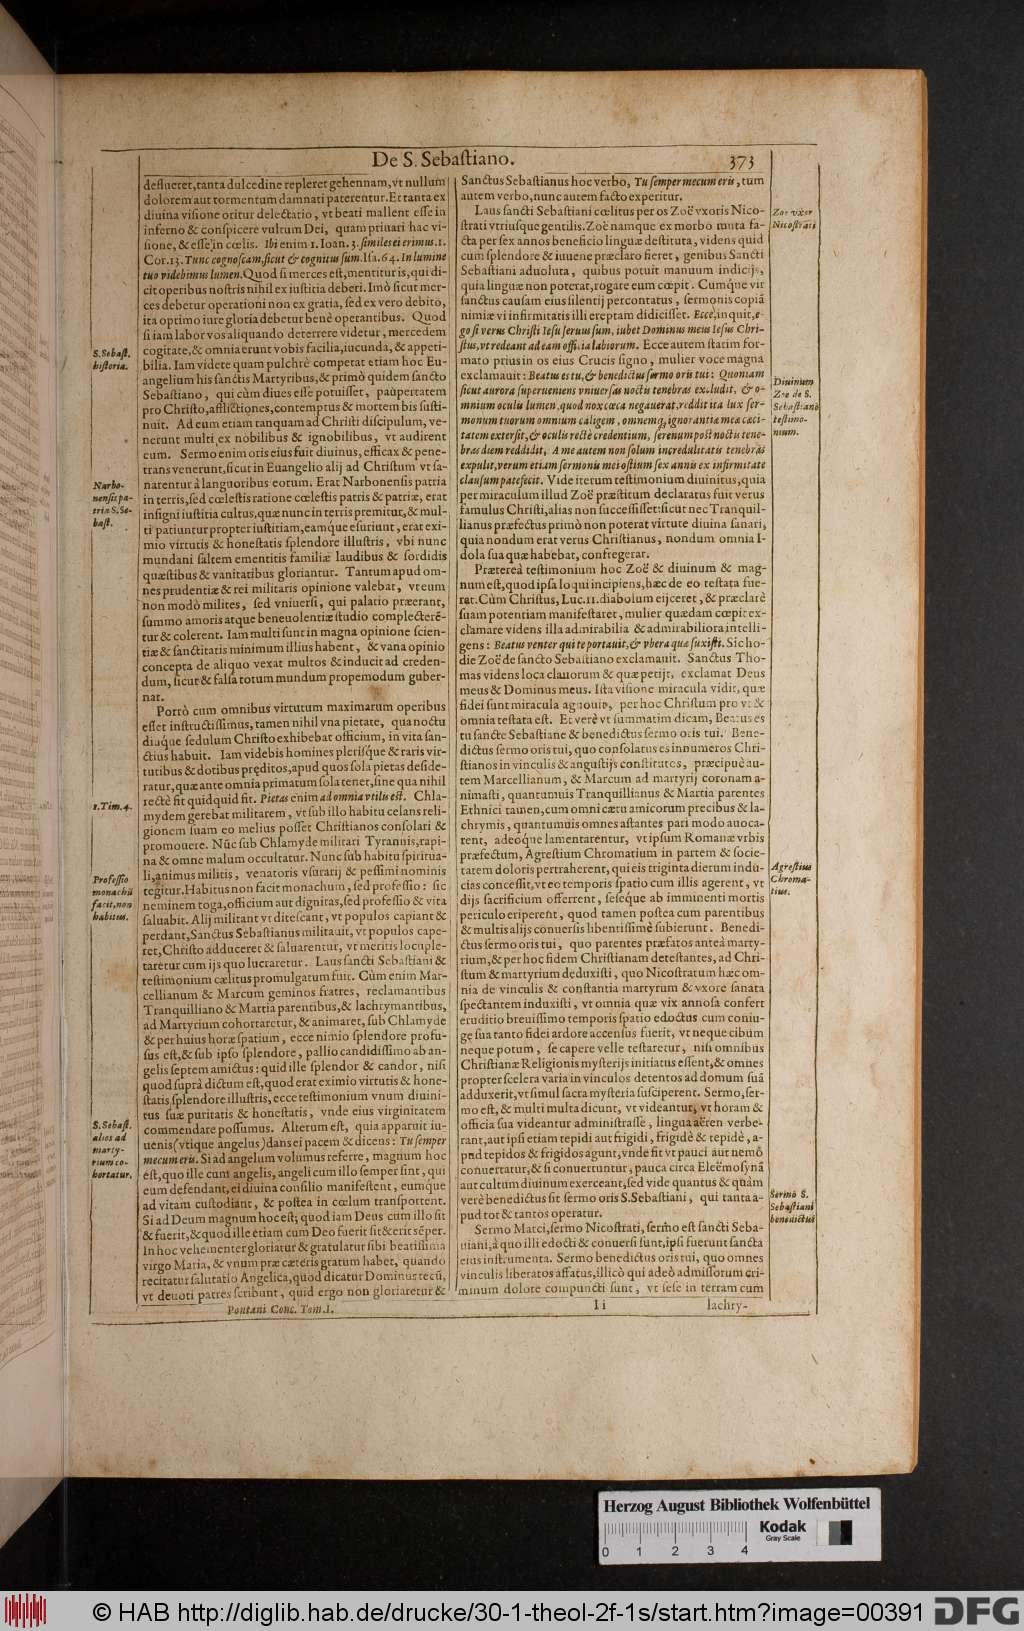 De S. Sebaſtiano. 373
deflueret, tanta dulcedine repleret gehennam, vt nullum
dolorem aut tormentum damnati paterentur. Et tanta ex
diuina viſione oritur delectatio, vt beati mallent eſſe in
inferno & conſpicere vultum Dei, quàm priuari hac vi-
ſione, & eſſe in cœlis. Ibi enim 1. Ioan. 3. ſimiles ei erimus. 1.
Cor. 13. Tunc cognoſcam, ſicut & cognitus ſum. Iſa. 64. In lumine
tuo videbimus lumen. Quod ſi merces eſt, mentitur is, qui di-
cit operibus noſtris nihil ex iuſtitia deberi. Imò ſicut mer-
ces debetur operationi non ex gratia, ſed ex vero debito,
ita optimo iure gloria debetur benè operantibus. Quod
ſi iam labor vos aliquando deterrere videtur, mercedem
S. Sebaſt.
hiſtoria.
cogitate, & omnia erunt vobis facilia, iucunda, & appeti-
bilia. Iam videte quam pulchrè competat etiam hoc Eu-
angelium his ſanctis Martyribus, & primò quidem ſancto
Sebaſtiano, qui cùm diues eſſe potuiſſet, paupertatem
pro Chriſto, afflictiones, contemptus & mortem bis ſuſti-
nuit. Ad eum etiam tanquam ad Chriſti diſcipulum, ve-
nerunt multi ex nobilibus & ignobilibus, vt audirent
cum. Sermo enim oris eius fuit diuinus, efficax & pene-
trans venerunt, ſicut in Euangelio alij ad Chriſtum vt ſa-
Narbo-
nenſis pa-
tria S. Se-
baſt.
narentur à languoribus eorum. Erat Narbonenſis patria
in terris, ſed cœleſtis ratione cœleſtis patris & patriæ, erat
inſigni iuſtitia cultus, quæ nunc in terris premitur, & mul-
ti patiuntur propter iuſtitiam, eamque eſuriunt, erat exi-
mio virtutis & honeſtatis ſplendore illuſtris, vbi nunc
mundani ſaltem ementitis familiæ laudibus & ſordidis
quæſtibus & vanitatibus gloriantur. Tantum apud om-
nes prudentiæ & rei militaris opinione valebat, vt eum
non modò milites, ſed vniuerſi, qui palatio præerant,
ſummo amoris atque beneuolentiæ ſtudio complecterē-
tur & colerent. Iam multi ſunt in magna opinione ſcien-
tiæ & ſanctitatis minimum illius habent, & vana opinio
concepta de aliquo vexat multos & inducit ad creden-
dum, ſicut & falſa totum mundum propemodum guber-
nat.
Porrò cum omnibus virtutum maximarum operibus
eſſet inſtructiſſimus, tamen nihil vna pietate, qua noctu
diuque ſedulum Chriſto exhibebat officium, in vita ſan-
ctius habuit. Iam videbis homines pleriſque & raris vir-
tutibus & dotibus pręditos, apud quos ſola pietas deſide-
ratur, quæ ante omnia primatum ſola tenet, ſine qua nihil
1. Tim. 4.
rectè fit quidquid fit. Pietas enim ad omnia vtilis eſt. Chla-
mydem gerebat militarem, vt ſub illo habitu celans reli-
gionem ſuam eo melius poſſet Chriſtianos conſolari &
promouere. Nūc ſub Chlamyde militari Tyrannis, rapi-
na & omne malum occultatur. Nunc ſub habitu ſpiritua-
Profeſſio
monachū
facit, non
habitus.
li, animus militis, venatoris vſurarij & peſſimi nominis
tegitur. Habitus non facit monachum, ſed profeſſio: ſic
neminem toga, officium aut dignitas, ſed profeſſio & vita
ſaluabit. Alij militant vt diteſcant, vt populos capiant &
perdant, Sanctus Sebaſtianus militauit, vt populos cape-
ret, Chriſto adduceret & ſaluarentur, vt meritis locuple-
taretur cum ijs quo luctaretur. Laus ſancti Sebaſtiani &
teſtimonium cœlitus promulgatum fuit. Cùm enim Mar-
cellianum & Marcum geminos fratres, reclamantibus
Tranquilliano & Martia parentibus, & lachrymantibus,
ad Martyrium cohortaretur, & animaret, ſub Chlamyde
& per huius horæ ſpatium, ecce nimio ſplendore profu-
ſus eſt, & ſub ipſo ſplendore, pallio candidiſſimo ab an-
gelis ſeptem amictus: quid ille ſplendor & candor, niſi
quod ſuprà dictum eſt, quod erat eximio virtutis & hone-
ſtatis ſplendore illuſtris, ecce teſtimonium vnum diuini-
S. Sebaſt.
alios ad
marty-
rium co-
hortatur.
tus ſuæ puritatis & honeſtatis, vnde eius virginitatem
commendare poſſumus. Alterum eſt, quia apparuit iu-
uenis (vtique angelus) dans ei pacem & dicens: Tu ſemper
mecum eris. Si ad angelum volumus referre, magnum hoc
eſt, quo ille cum angelis, angeli cum illo ſemper ſint, qui
eum defendant, ei diuina conſilio manifeſtent, eumque
ad vitam cuſtodiant, & poſtea in cœlum tranſportent.
Si ad Deum magnum hoc eſt; quod iam Deus cum illo ſit
& fuerit, & quod ille etiam cum Deo fuerit ſit & erit sēper.
In hoc vehementer gloriatur & gratulatur ſibi beatiſſima
virgo Maria, & vnum præ cæteris gratum habet, quando
recitatur ſalutatio Angelica, quòd dicatur Dominus tecū,
vt deuoti patres ſcribunt, quid ergo non gloriaretur &
Pontani Conc. Tom. I.
Sanctus Sebaſtianus hoc verbo, Tu ſemper mecum eris, tum
autem verbo, nunc autem facto experitur.
Zoe vxor
Nicoſtrati
Laus ſancti Sebaſtiani cœlitus per os Zoë vxoris Nico-
ſtrati vtriuſque gentilis. Zoë namque ex morbo muta fa-
cta per ſex annos beneficio linguæ deſtituta, videns quid
cum ſplendore & iuuene præclaro fieret, genibus Sancti
Sebaſtiani aduoluta, quibus potuit manuum indicijs,
quia linguæ non poterat, rogare eum cœpit. Cumque vir
ſanctus cauſam eius ſilentij percontatus, ſermonis copiā
nimiæ vi infirmitatis illi ereptam didiciſſet. Ecce, inquit, e-
go ſi verus Chriſti Ieſu ſeruus ſum, iubet Dominus meus Ieſus Chri-
ſtus, vt redeant ad eam officia labiorum. Ecce autem ſtatim for-
mato prius in os eius Crucis ſigno, mulier voce magna
Diuinum
Zoe de S.
Sebaſtiano
teſtimo-
nium.
exclamauit: Beatus es tu, & benedictus ſermo oris tui: Quoniam
ſicut aurora ſuperueniens vniuerſas noctis tenebras excludit, & o-
mnium oculis lumen, quod nox cœca negauerat, reddit ita lux ſer-
monum tuorum omnium caligem, omnemq́; ignorantiæ meæ cæci-
tatem exterſit, & oculis rectè credentium, ſerenum poſt noctis tene-
bras diem reddidit, A me autem non ſolum incredulitatis tenebras
expulit, verum etiam ſermonis mei oſtium ſex annis ex infirmitate
clauſum patefecit. Vide iterum teſtimonium diuinitus, quia
per miraculum illud Zoë præſtitum declaratus fuit verus
famulus Chriſti, alias non ſucceſſiſſet: ſicut nec Tranquil-
lianus præfectus primò non poterat virtute diuina ſanari,
quia nondum erat verus Chriſtianus, nondum omnia I-
dola ſua quæ habebat, confregerat.
Prætereà teſtimonium hoc Zoë & diuinum & mag-
num eſt, quod ipſa loqui incipiens, hæc de eo teſtata fue-
rat. Cùm Chriſtus, Luc. 11. diabolum eijceret, & præclarè
ſuam potentiam manifeſtaret, mulier quædam cœpit ex-
clamare videns illa admirabilia & admirabiliora intelli-
gens: Beatus venter qui te portauit, & vbera quæ ſuxiſti. Sic ho-
die Zoë de ſancto Sebaſtiano exclamauit. Sanctus Tho-
mas videns loca clauorum & quæ petijt, exclamat Deus
meus & Dominus meus. Iſta viſione miracula vidit, quæ
fidei ſunt miracula agnouit, per hoc Chriſtum pro vt &
omnia teſtata eſt. Et verè vt ſummatim dicam, Beatus es
tu ſancte Sebaſtiane & benedictus ſermo oris tui. Bene-
dictus ſermo oris tui, quo conſolatus es innumeros Chri-
ſtianos in vinculis & anguſtijs conſtitutos, præcipuè au-
tem Marcellianum, & Marcum ad martyrij coronam a-
nimaſti, quantumuis Tranquillianus & Martia parentes
Ethnici tamen, cum omni cætu amicorum precibus & la-
chrymis, quantumuis omnes aſtantes pari modo auoca-
rent, adeóque lamentarentur, vt ipſum Romanæ vrbis
Agreſtius
Chroma-
tius.
præfectum, Agreſtium Chromatium in partem & ſocie-
tatem doloris pertraherent, qui eis triginta dierum indu-
cias conceſſit, vt eo temporis ſpatio cum illis agerent, vt
dijs ſacrificium offerrent, ſeſeque ab imminenti mortis
periculo eriperent, quod tamen poſtea cum parentibus
& multis alijs conuerſis libentiſſimè ſubierunt. Benedi-
ctus ſermo oris tui, quo parentes præfatos anteà marty-
rium, & per hoc fidem Chriſtianam deteſtantes, ad Chri-
ſtum & martyrium deduxiſti, quo Nicoſtratum hæc om-
nia de vinculis & conſtantia martyrum & vxore ſanata
ſpectantem induxiſti, vt omnia quæ vix annoſa confert
eruditio breuiſſimo temporis ſpatio edoctus cum coniu-
ge ſua tanto fidei ardore accenſus fuerit, vt neque cibum
neque potum, ſe capere velle teſtaretur, niſi omnibus
Chriſtianæ Religionis myſterijs initiatus eſſent, & omnes
propter ſcelera varia in vinculos detentos ad domum ſuā
adduxerit, vt ſimul ſacra myſteria ſuſciperent. Sermo, ſer-
mo eſt, & multi multa dicunt, vt videantur, vt horam &
officia ſua videantur adminiſtraſſe, lingua aëren verbe-
rant, aut ipſi etiam tepidi aut frigidi, frigidè & tepidè, a-
pud tepidos & frigidos agunt, vnde fit vt pauci aut nemò
conuertatur, & ſi conuertuntur, pauca circa Eleëmoſynā
aut cultum diuinum exerceant, ſed vide quantus & quàm
Sermo S.
Sebaſtiani
benedictus
verè benedictus ſit ſermo oris S. Sebaſtiani, qui tanta a-
pud tot & tantos operatur.
Sermo Marci, ſermo Nicoſtrati, ſermo eſt ſancti Seba-
ſtiani, à quo illi edocti & conuerſi ſunt, ipſi fuerunt ſancta
eius inſtrumenta. Sermo benedictus oris tui, quo omnes
vinculis liberatos affatus, illicò qui adeò admiſſorum cri-
minum dolore compuncti ſunt, vt ſeſe in terram cum
I i lachry-
Herzog August Bibliothek Wolfenbüttel
Kodak
Gray Scale
0 1 2 3 4
© HAB http://diglib.hab.de/drucke/30-1-theol-2f-1s/start.htm?image=00391
DFG